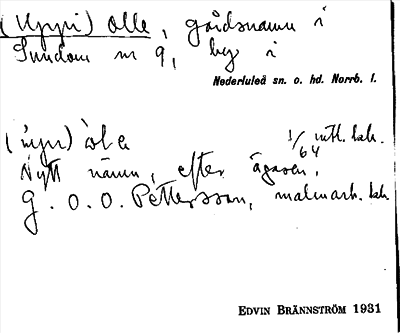 (Uppi) Olle, gårdsnamn i
Sundom nr 9, by i
Nederluleå sn. o. hd. Norrb. l.
1/64 mtl.
Nytt namn, efter ägaren,
g. O. O. Pettersson, malmarb.
EDVIN BRÄNNSTRÖM 1931